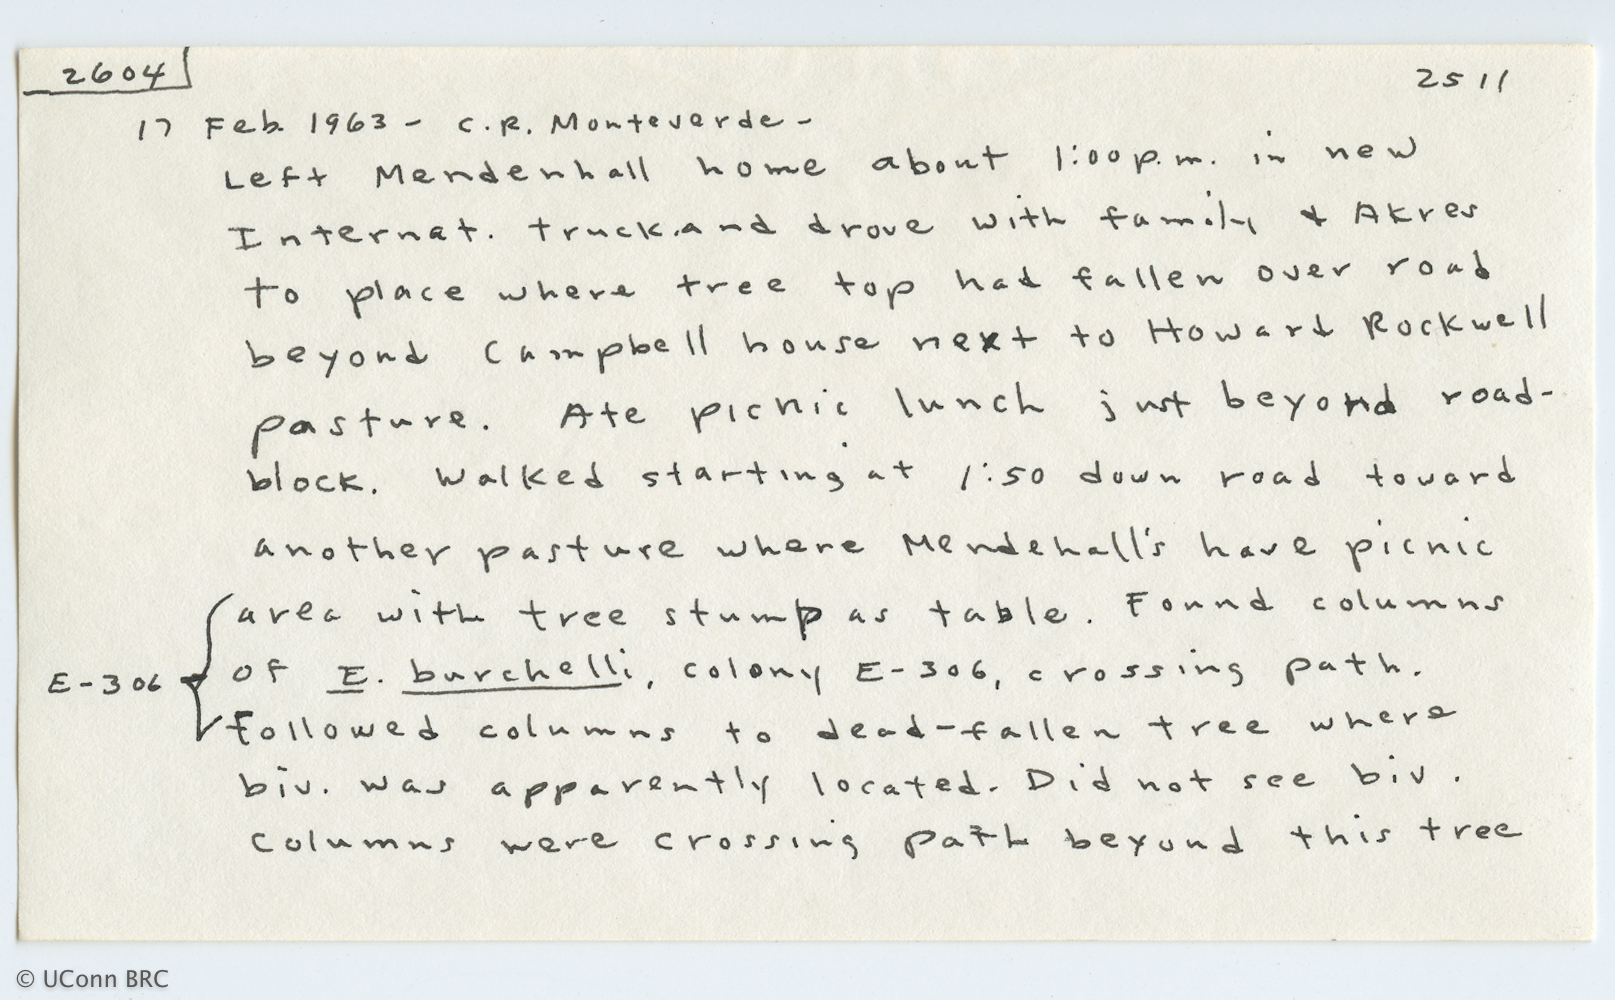 2604
2511
17 Feb. 1963 - C.R. Monteverde -
Left Mendenhall home about 1:00 p.m. in new
Internat. truck and drove with family & Akres
to place where tree top had fallen over road
beyond Campbell house next to Howard Rockwell
pasture. Ate picnic lunch just beyond road-
block. Walked starting at 1:50 down road toward
another pasture where Mendehall's have picnic
area with tree stump as table. Found columns
E-306 of E. burchelli, colony E-306, crossing path.
Followed columns to dead-fallen tree where
biv. was apparently located. Did not see biv.
Columns were crossing path beyond this tree
© UConn BRC